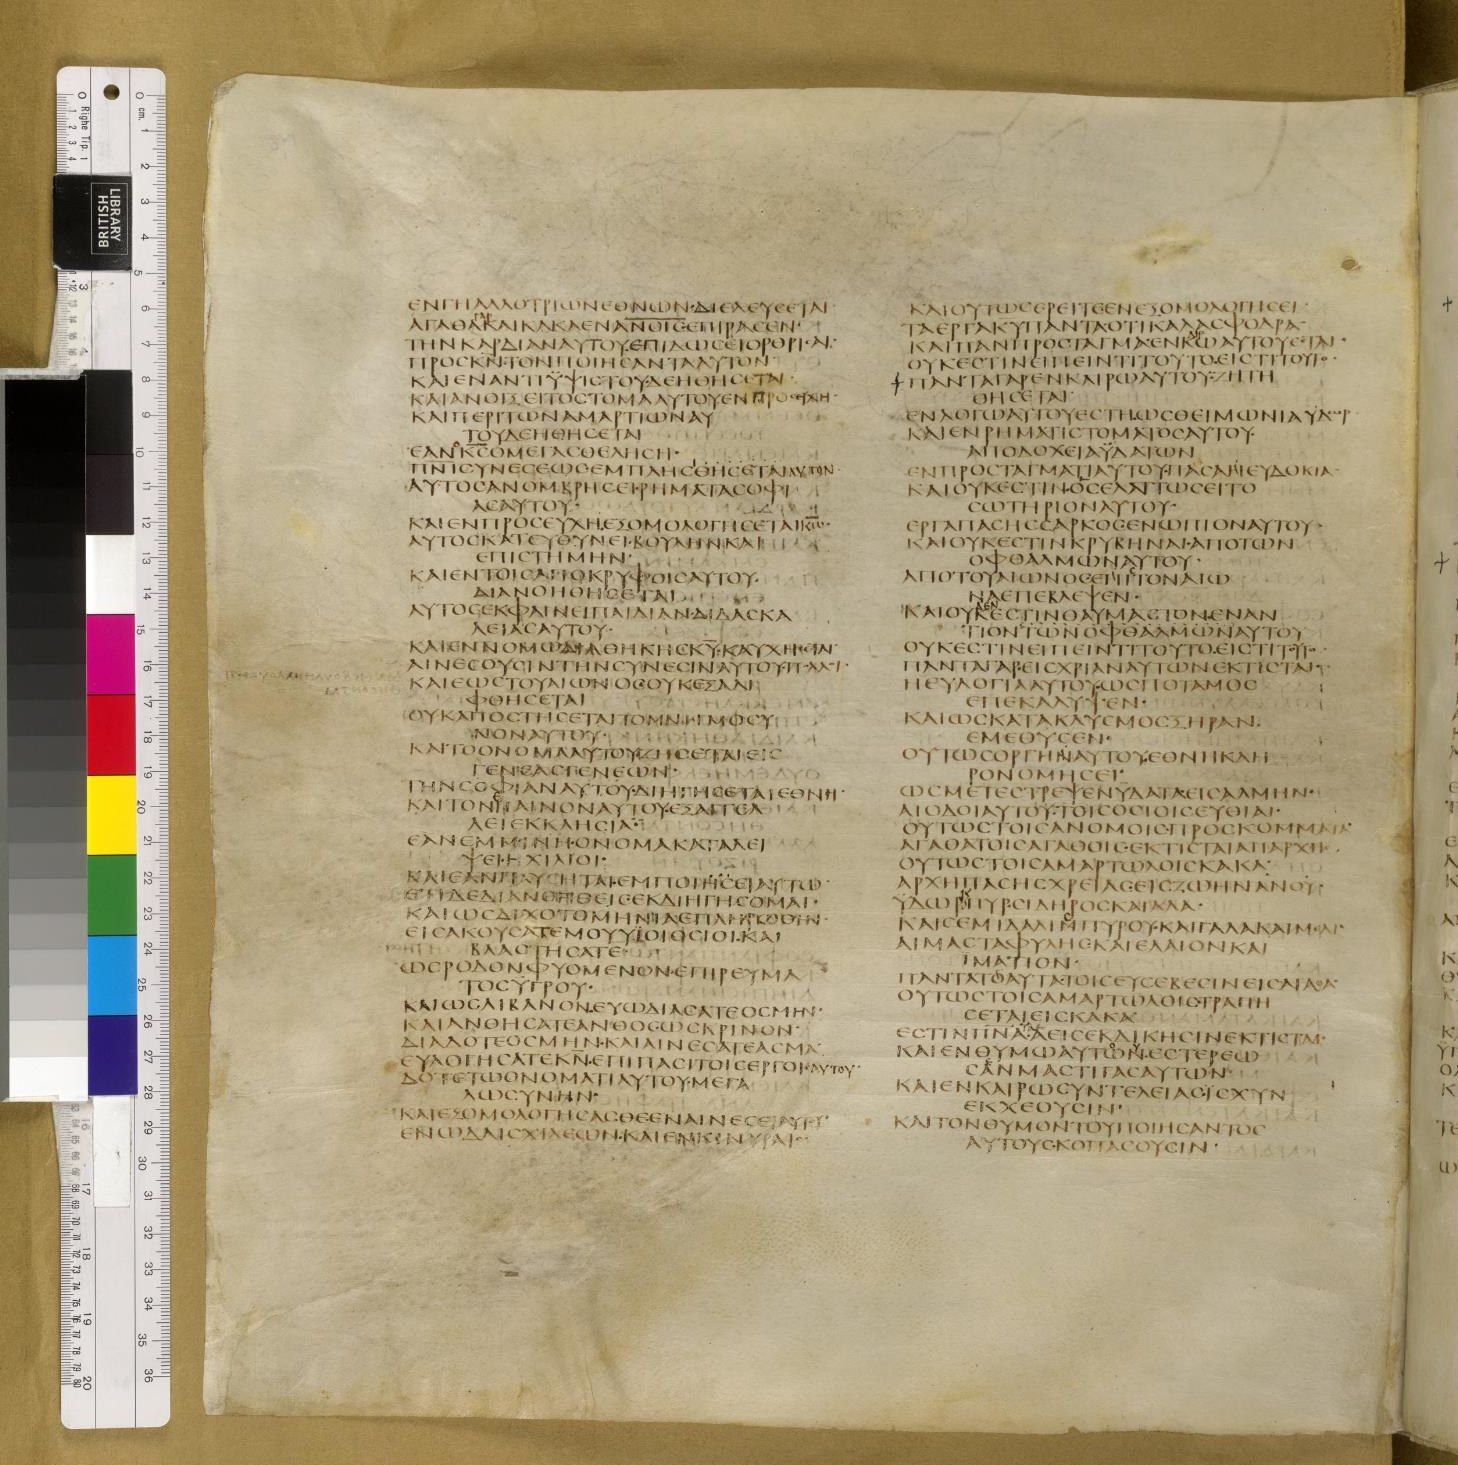 BRITISH
LIBRARY
ΕΝ ΓΗ ΑΛΛΟΤΡΙΩΝ ΕΘΝΩΝ· ΔΙΕΛΕΥϹΕΤΑΙ·
ΑΓΑΘΑ ΓΑΡ ΚΑΙ ΚΑΚΑ ΕΝ ΑΝΟΙϹ ΕΠΙΡΑϹΕΝ·
ΤΗΝ ΚΑΡΔΙΑΝ ΑΥΤΟΥ ΕΠΙΔΩϹΕΙ ΟΡΘΡΙϹΑΙ·
ΠΡΟϹ ΚΝ ΤΟΝ ΠΟΙΗϹΑΝΤΑ ΑΥΤΟΝ
ΚΑΙ ΕΝΑΝΤΙ ΫΨΙϹΤΟΥ ΔΕΗΘΗϹΕΤΑΙ·
ΚΑΙ ΑΝΟΙΞΕΙ ΤΟ ϹΤΟΜΑ ΑΥΤΟΥ ΕΝ ΠΡΟϹΕΥΧΗ·
ΚΑΙ ΠΕΡΙ ΤΩΝ ΑΜΑΡΤΙΩΝ ΑΥ
ΤΟΥ ΔΕΗΘΗϹΕΤΑΙ
ΕΑΝ Ο ΚϹ Ο ΜΕΓΑϹ ΘΕΛΗϹΗ·
ΠΝΙ ϹΥΝΕϹΕΩϹ ΕΜΠΛΗϹΘΗϹΕΤΑΙ ΑΥΤΟΝ
ΑΥΤΟϹ ΑΝΟΜΒΡΗϹΕΙ ΡΗΜΑΤΑ ϹΟΦΙ
ΑϹ ΑΥΤΟΥ·
ΚΑΙ ΕΝ ΠΡΟϹΕΥΧΗ ΕΞΟΜΟΛΟΓΗϹΕΤΑΙ ΚΩ·
ΑΥΤΟϹ ΚΑΤΕΥΘΥΝΕΙ ΒΟΥΛΗΝ ΚΑΙ
ΕΠΙϹΤΗΜΗΝ·
ΚΑΙ ΕΝ ΤΟΙϹ ΑΠΟΚΡΥΦΟΙϹ ΑΥΤΟΥ
ΔΙΑΝΟΗΘΗϹΕΤΑΙ
ΑΥΤΟϹ ΕΚΦΑΙΝΕΙ ΠΑΙΔΙΑΝ ΔΙΔΑϹΚΑ
ΛΕΙΑϹ ΑΥΤΟΥ·
ΚΑΙ ΕΝ ΝΟΜΩ ΔΙΑΘΗΚΗϹ ΚΥ ΚΑΥΧΗϹΕΤΑΙ
ΑΙΝΕϹΟΥϹΙΝ ΤΗΝ ϹΥΝΕϹΙΝ ΑΥΤΟΥ ΠΟΛΛΟΙ·
ΚΑΙ ΕΩϹ ΤΟΥ ΑΙΩΝΟϹ ΟΥΚ ΕΞΑΛΙ
ΦΘΗϹΕΤΑΙ
ΟΥΚ ΑΠΟϹΤΗϹΕΤΑΙ ΤΟ ΜΝΗΜΟϹΥ
ΝΟΝ ΑΥΤΟΥ·
ΚΑΙ ΤΟ ΟΝΟΜΑ ΑΥΤΟΥ ΖΗϹΕΤΑΙ ΕΙϹ
ΓΕΝΕΑϹ ΓΕΝΕΩΝ·
ΤΗΝ ϹΟΦΙΑΝ ΑΥΤΟΥ ΔΙΗΓΗϹΕΤΑΙ ΕΘΝΗ·
ΚΑΙ ΤΟΝ ΕΠΑΙΝΟΝ ΑΥΤΟΥ ΕΞΑΓΓΕΛ
ΛΕΙ ΕΚΚΛΗϹΙΑ·
ΕΑΝ ΕΜΜΙΝΗ ΟΝΟΜΑ ΚΑΤΑΛΕΙ
ΨΕΙ Η ΧΙΛΙΟΙ·
ΚΑΙ ΕΑΝ ΑΝΑΠΑΥϹΗΤΑΙ ΕΜΠΟΙΗϹΕΙ ΑΥΤΩ·
ΕΤΙ ΔΕ ΔΙΑΝΟΗΘΕΙϹ ΕΚΔΙΗΓΗϹΟΜΑΙ·
ΚΑΙ ΩϹ ΔΙΧΟΤΟΜΗΝΙΑ ΕΠΛΗΡΩΘΗΝ·
ΕΙϹΑΚΟΥϹΑΤΕ ΜΟΥ ΥΙΟΙ ΟϹΙΟΙ ΚΑΙ
ΒΛΑϹΤΗϹΑΤΕ·
ΩϹ ΡΟΔΟΝ ΦΥΟΜΕΝΟΝ ΕΠΙ ΡΕΥΜΑ
ΤΟϹ ΫΓΡΟΥ·
ΚΑΙ ΩϹ ΛΙΒΑΝΟΝ ΕΥΩΔΙΑϹΑΤΕ ΟϹΜΗΝ·
ΚΑΙ ΑΝΘΗϹΑΤΕ ΑΝΘΟϹ ΩϹ ΚΡΙΝΟΝ·
ΔΙΑΔΟΤΕ ΟϹΜΗΝ ΚΑΙ ΑΙΝΕϹΑΤΕ ΑϹΜΑ
ΕΥΛΟΓΗϹΑΤΕ ΚΝ ΕΠΙ ΠΑϹΙ ΤΟΙϹ ΕΡΓΟΙϹ ΑΥΤΟΥ·
ΔΟΤΕ ΤΩ ΟΝΟΜΑΤΙ ΑΥΤΟΥ ΜΕΓΑ
ΛΩϹΥΝΗΝ·
ΚΑΙ ΕΞΟΜΟΛΟΓΗϹΑϹΘΕ ΕΝ ΑΙΝΕϹΕΙ ΑΥΤΟΥ·
ΕΝ ΩΔΑΙϹ ΧΙΛΕΩΝ ΚΑΙ ΕΝ ΚΙΝΥΡΑΙϹ
ΚΑΙ ΟΥΤΩϹ ΕΡΕΙΤΕ ΕΝ ΕΞΟΜΟΛΟΓΗϹΕΙ·
ΤΑ ΕΡΓΑ ΚΥ ΠΑΝΤΑ ΟΤΙ ΚΑΛΑ ϹΦΟΔΡΑ·
ΚΑΙ ΠΑΝ ΠΡΟϹΤΑΓΜΑ ΕΝ ΚΑΙΡΩ ΑΥΤΟΥ ΕϹΤΑΙ·
ΟΥΚ ΕϹΤΙΝ ΕΙΠΕΙΝ ΤΙ ΤΟΥΤΟ ΕΙϹ ΤΙ ΤΟΥΤΟ·
ΠΑΝΤΑ ΓΑΡ ΕΝ ΚΑΙΡΩ ΑΥΤΟΥ ΖΗΤΗ
ΘΗϹΕΤΑΙ
ΕΝ ΛΟΓΩ ΑΥΤΟΥ ΕϹΤΗ ΩϹ ΘΕΙΜΩΝΙΑ ΫΔΩΡ
ΚΑΙ ΕΝ ΡΗΜΑΤΙ ϹΤΟΜΑΤΟϹ ΑΥΤΟΥ
ΑΠΟΔΟΧΕΙΑ ΫΔΑΤΩΝ
ΕΝ ΠΡΟϹΤΑΓΜΑΤΙ ΑΥΤΟΥ ΠΑϹΑ Η ΕΥΔΟΚΙΑ·
ΚΑΙ ΟΥΚ ΕϹΤΙΝ ΟϹ ΕΛΑΤΤΩϹΕΙ ΤΟ
ϹΩΤΗΡΙΟΝ ΑΥΤΟΥ·
ΕΡΓΑ ΠΑϹΗϹ ϹΑΡΚΟϹ ΕΝΩΠΙΟΝ ΑΥΤΟΥ·
ΚΑΙ ΟΥΚ ΕϹΤΙΝ ΚΡΥΒΗΝΑΙ ΑΠΟ ΤΩΝ
ΟΦΘΑΛΜΩΝ ΑΥΤΟΥ·
ΑΠΟ ΤΟΥ ΑΙΩΝΟϹ ΕΙϹ ΤΟΝ ΑΙΩ
ΝΑ ΕΠΕΒΛΕΨΕΝ·
ΚΑΙ ΟΥΔΕΝ ΕϹΤΙΝ ΘΑΥΜΑϹΙΟΝ ΕΝΑΝ
ΤΙΟΝ ΤΩΝ ΟΦΘΑΛΜΩΝ ΑΥΤΟΥ
ΟΥΚ ΕϹΤΙΝ ΕΙΠΕΙΝ ΤΙ ΤΟΥΤΟ ΕΙϹ ΤΙ ΤΟΥΤΟ·
ΠΑΝΤΑ ΓΑΡ ΕΙϹ ΧΡΙΑΝ ΑΥΤΩΝ ΕΚΤΙϹΤΑΙ·
Η ΕΥΛΟΓΙΑ ΑΥΤΟΥ ΩϹ ΠΟΤΑΜΟϹ
ΕΠΕΚΑΛΥΨΕΝ·
ΚΑΙ ΩϹ ΚΑΤΑΚΛΥϹΜΟϹ ΞΗΡΑΝ
ΕΜΕΘΥϹΕΝ·
ΟΥΤΩϹ ΟΡΓΗΝ ΑΥΤΟΥ ΕΘΝΗ ΚΛΗ
ΡΟΝΟΜΗϹΕΙ
ΩϹ ΜΕΤΕϹΤΡΕΨΕΝ ΥΔΑΤΑ ΕΙϹ ΑΛΜΗΝ·
ΑΙ ΟΔΟΙ ΑΥΤΟΥ ΤΟΙϹ ΟϹΙΟΙϹ ΕΥΘΙΑΙ·
ΟΥΤΩϹ ΤΟΙϹ ΑΝΟΜΟΙϹ ΠΡΟϹΚΟΜΜΑΤΑ
ΑΓΑΘΑ ΤΟΙϹ ΑΓΑΘΟΙϹ ΕΚΤΙϹΤΑΙ ΑΠ ΑΡΧΗϹ
ΟΥΤΩϹ ΤΟΙϹ ΑΜΑΡΤΩΛΟΙϹ ΚΑΚΑ·
ΑΡΧΗ ΠΑϹΗϹ ΧΡΕΙΑϹ ΕΙϹ ΖΩΗΝ ΑΝΟΥ·
ΫΔΩΡ ΠΥΡ ϹΙΔΗΡΟϹ ΚΑΙ ΑΛΑ·
ΚΑΙ ϹΕΜΙΔΑΛΙϹ ΠΥΡΟΥ ΚΑΙ ΓΑΛΑ ΚΑΙ ΜΕΛΙ·
ΑΙΜΑ ϹΤΑΦΥΛΗϹ ΚΑΙ ΕΛΑΙΟΝ ΚΑΙ
ΪΜΑΤΙΟΝ·
ΠΑΝΤΑ ΤΑΥΤΑ ΤΟΙϹ ΕΥϹΕΒΕϹΙΝ ΕΙϹ ΑΓΑΘΑ
ΟΥΤΩϹ ΤΟΙϹ ΑΜΑΡΤΩΛΟΙϹ ΤΡΑΠΗ
ϹΕΤΑΙ ΕΙϹ ΚΑΚΑ
ΕϹΤΙΝ ΠΝΑΤΑ Α ΕΙϹ ΕΚΔΙΚΗϹΙΝ ΕΚΤΙϹΤΑΙ·
ΚΑΙ ΕΝ ΘΥΜΩ ΑΥΤΟΥ ΕϹΤΕΡΕΩ
ϹΑΝ ΜΑϹΤΙΓΑϹ ΑΥΤΩΝ
ΚΑΙ ΕΝ ΚΑΙΡΩ ϹΥΝΤΕΛΕΙΑϹ ΪϹΧΥΝ
ΕΚΧΕΟΥϹΙΝ·
ΚΑΙ ΤΟΝ ΘΥΜΟΝ ΤΟΥ ΠΟΙΗϹΑΝΤΟϹ
ΑΥΤΟΥϹ ΚΟΠΑϹΟΥϹΙΝ·